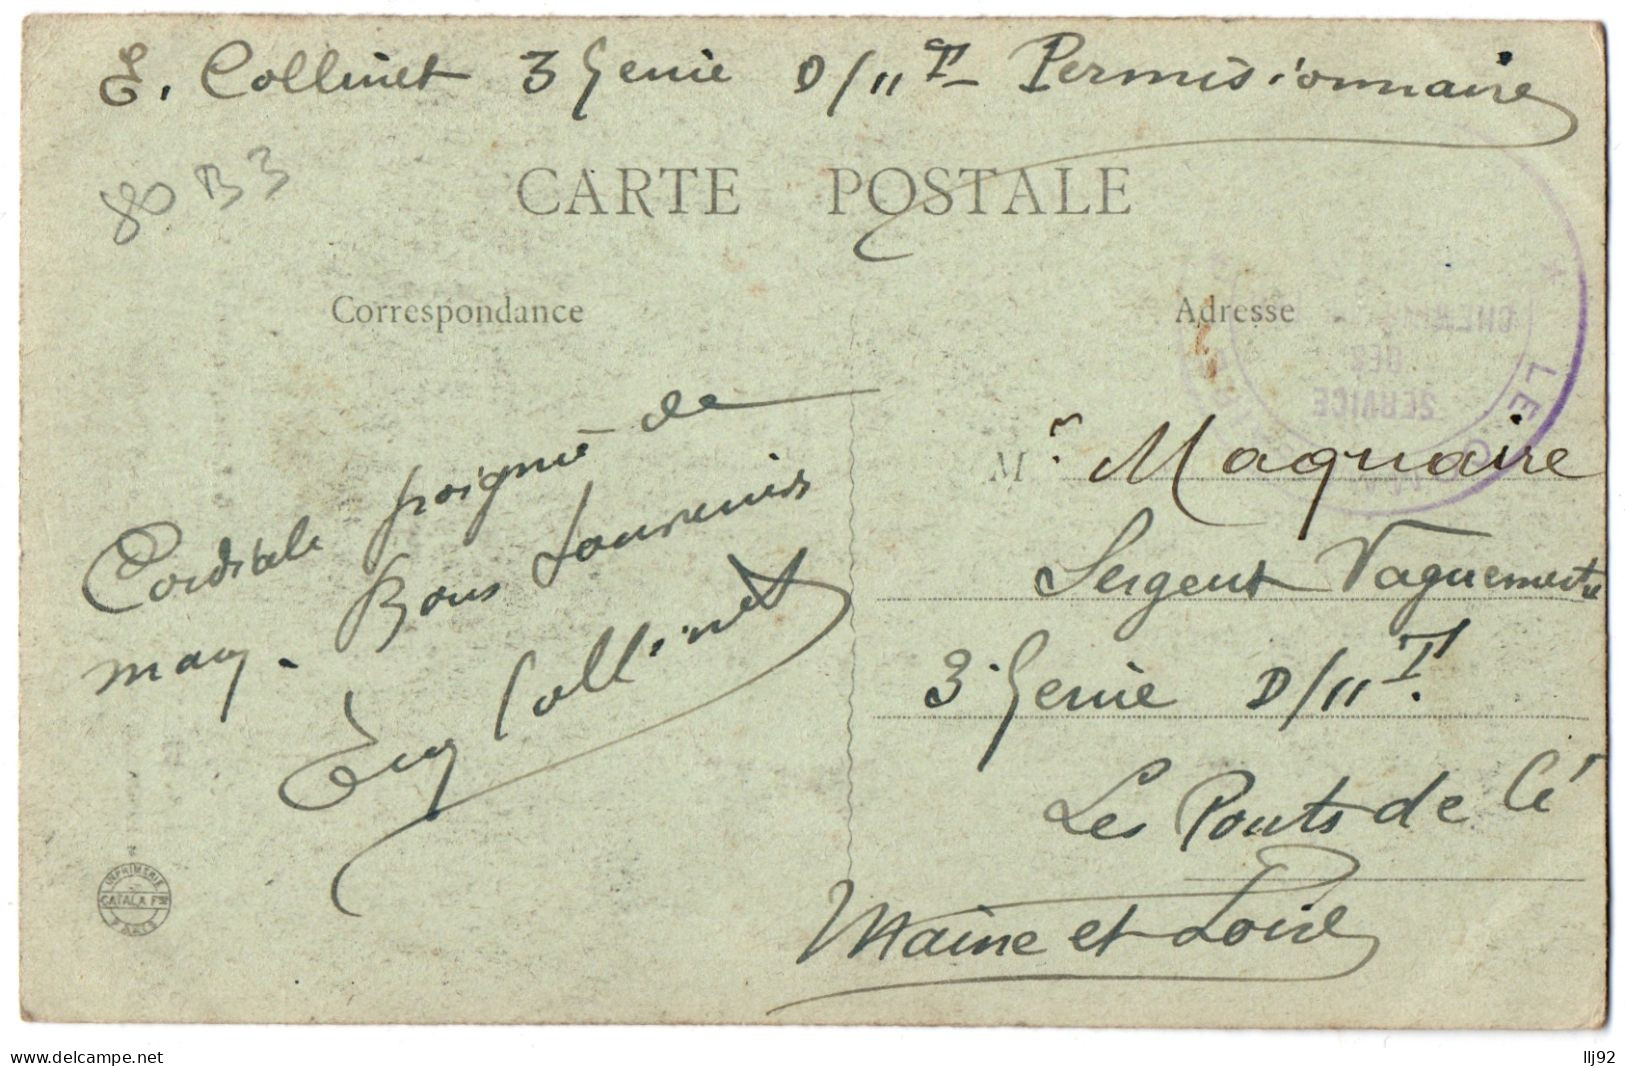 E. Collinet 3 Génie D/11 T- Permissionnaire
80 B3
CARTE POSTALE
Correspondance
Adresse
Cordiale poignée de
main. Bons Souvenirs
Eug Collinet
Mr. Maquaire
Sergent Vaguemestre
3 Génie D/11 T.
Les Ponts de Cé
Maine et Loire
LE
CHEMINS
DES
SERVICE
IMPRIMERIE
CATALA Fres
PARIS
delcampe.net
llj92